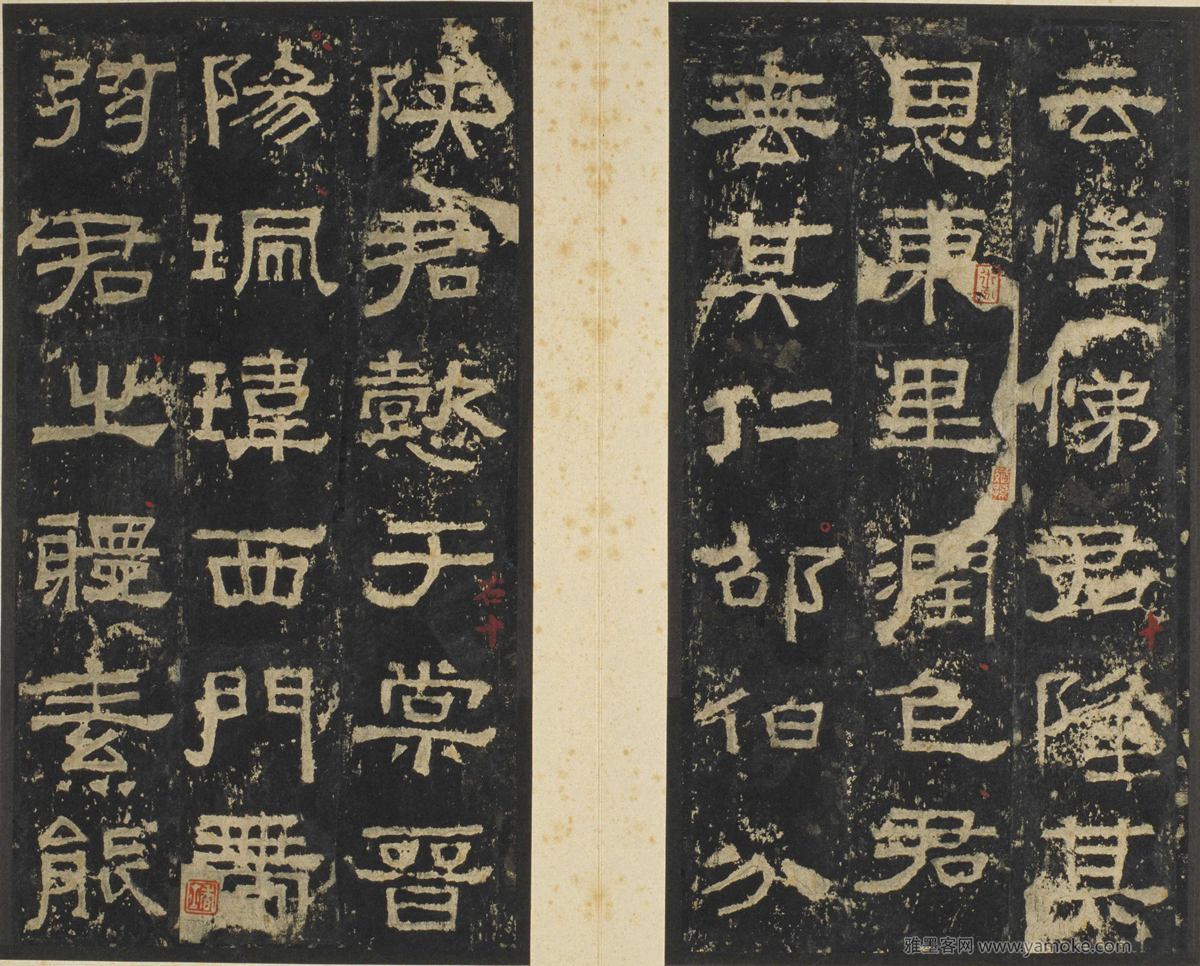 云愷悌君隆其
恩東里潤色君
垂其仁邵伯分
陝君懿于棠晉
陽珮瑋西門帶
弦君之體素能
雅墨客网 www.yamoke.com